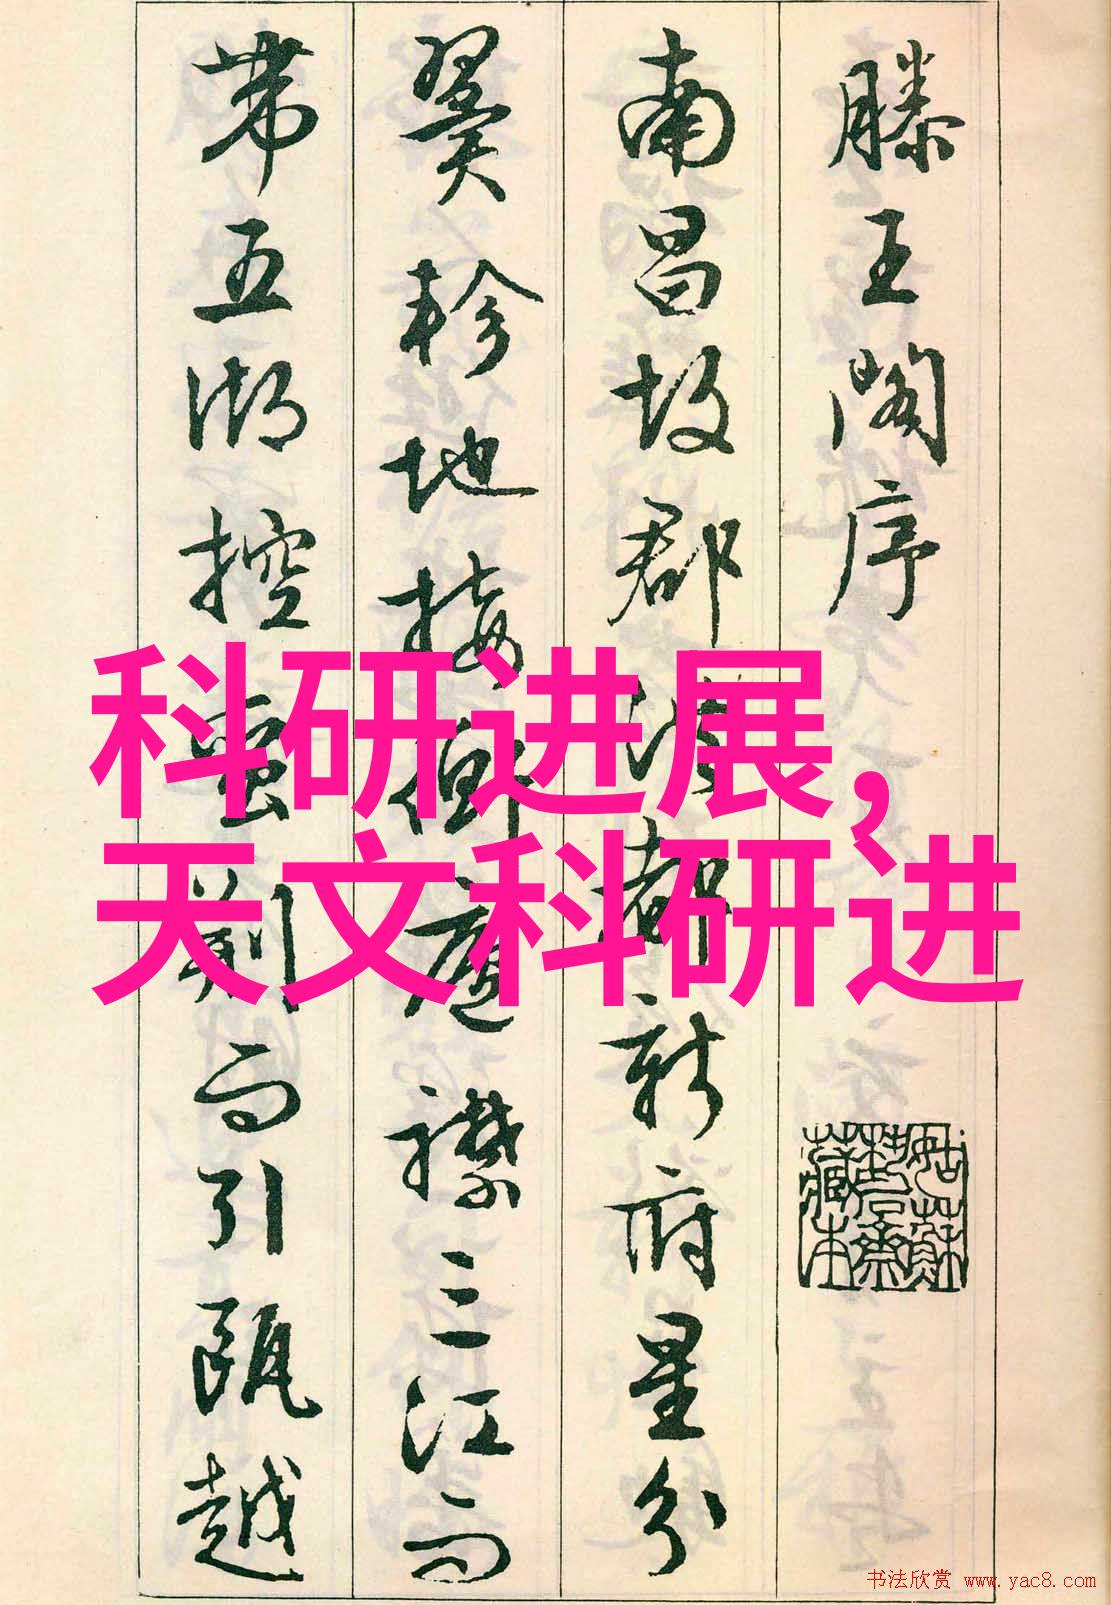 滕王阁序
南昌故郡洪都新府星分
翼轸地接衡庐襟三江而
带五湖控蛮荆而引瓯越
科研进展，
天文科研进
姑苏
藏本
书法欣赏 www.yac8.com